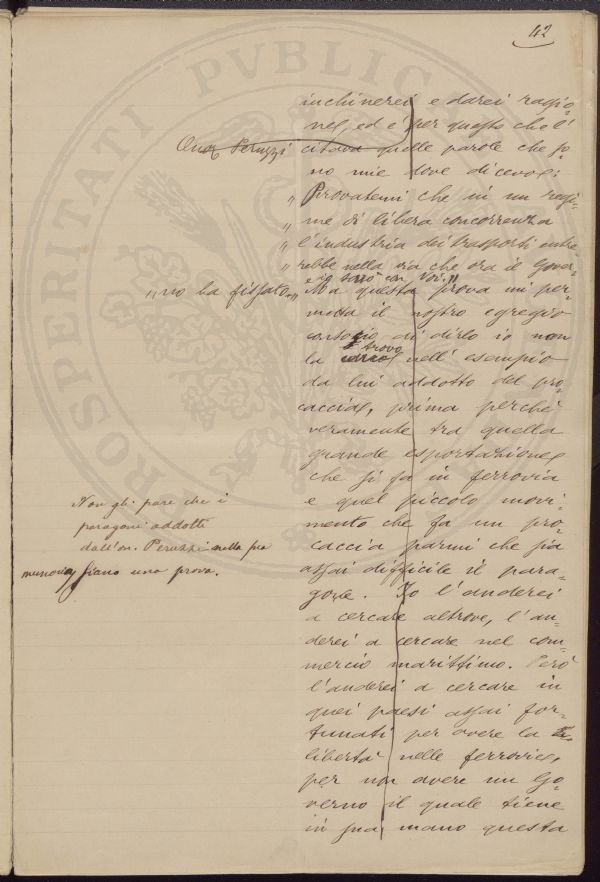 42
inchinerei e darei ragio-
ne, ed è per questo che l'
Onor. Peruzzi citava quelle parole che so-
no mie dove dicevo:
„ Provatemi che in un regi-
„ me di libera concorrenza
„ l'industria dei trasporti entre-
„ rebbe nella via che ora il Gover-
e io sarò con Voi."
„ no ha fissato. „ Ma questa prova mi per-
metta il nostro egregio
di dirlo io non
la trovo nell'esempio
da lui addotto del pro-
caccia, prima perchè
veramente tra quella
grande esportazione
che si fa in ferrovia
e quel piccolo movi-
mento che fa un pro-
caccia parmi che sia
assai difficile il para-
gone. Io l'anderei
a cercare altrove, l'an-
derei a cercare nel com-
mercio marittimo. Però
l'anderei a cercare in
quei paesi assai for-
tunati per avere la
libertà nelle ferrovie,
per non avere un Go-
verno il quale tiene
in sua mano questa
Non gli pare che i
paragoni addotti
dall'on. Peruzzi nella sua
memoria siano una prova.
PROSPERITATI PVBLICAE